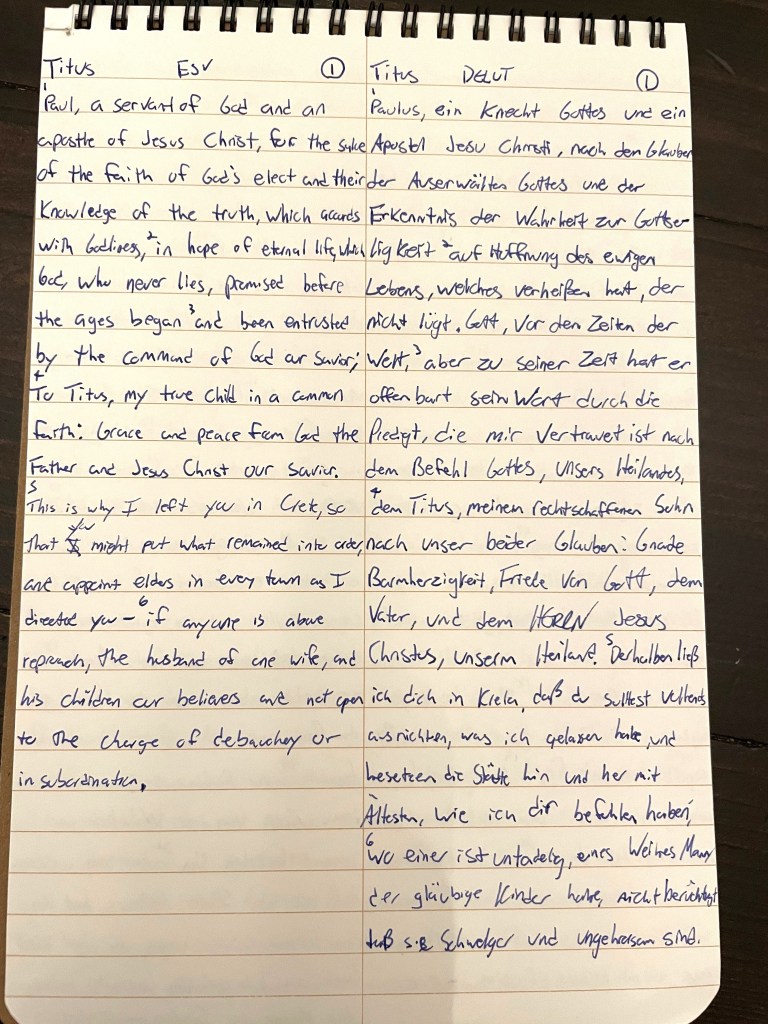 Titus ESV ①
1
Paul, a servant of God and an
apostle of Jesus Christ, for the sake
of the faith of God's elect and their
Knowledge of the truth, which accords
with Godliness, 2 in hope of eternal life, which
God, who never lies, promised before
the ages began 3 and been entrusted
by the command of God our Savior;
4
To Titus, my true child in a common
faith: Grace and peace from God the
Father and Jesus Christ our Savior.
5
This is why I left you in Crete, so
you
that might put what remained into order,
and appoint elders in every town as I
directed you - 6 if anyone is above
reproach, the husband of one wife, and
his children are believers and not open
to the charge of debauchery or
insubordination.
Titus DELUT ①
1
Paulus, ein Knecht Gottes und ein
Apostel Jesu Christi, nach dem Glauben
der Auserwählten Gottes und der
Erkenntnis der Wahrheit zur Gottse-
ligkeit 2 auf Hoffnung des ewigen
Lebens, welches verheißen hat, der
nicht lügt, Gott, vor den Zeiten der
Welt, 3 aber zu seiner Zeit hat er
offenbart sein Wort durch die
Predigt, die mir vertrauet ist nach
dem Befehl Gottes, unsers Heilandes,
4
dem Titus, meinem rechtschaffenen Sohn
nach unser beider Glauben: Gnade
Barmherzigkeit, Friede von Gott, dem
Vater, und dem HERRN Jesus
Christus, unserm Heiland. 5 Derhalben ließ
ich dich in Kreta, daß du solltest vollends
ausrichten, was ich gelassen habe, und
besetzen die Städte hin und her mit
Ältesten, wie ich dir befohlen haben,
6
Wo einer ist untadelig, eines Weibes Mann
der gläubige Kinder habe, nicht berüchtigt
daß sie Schwelger und ungehorsam sind.